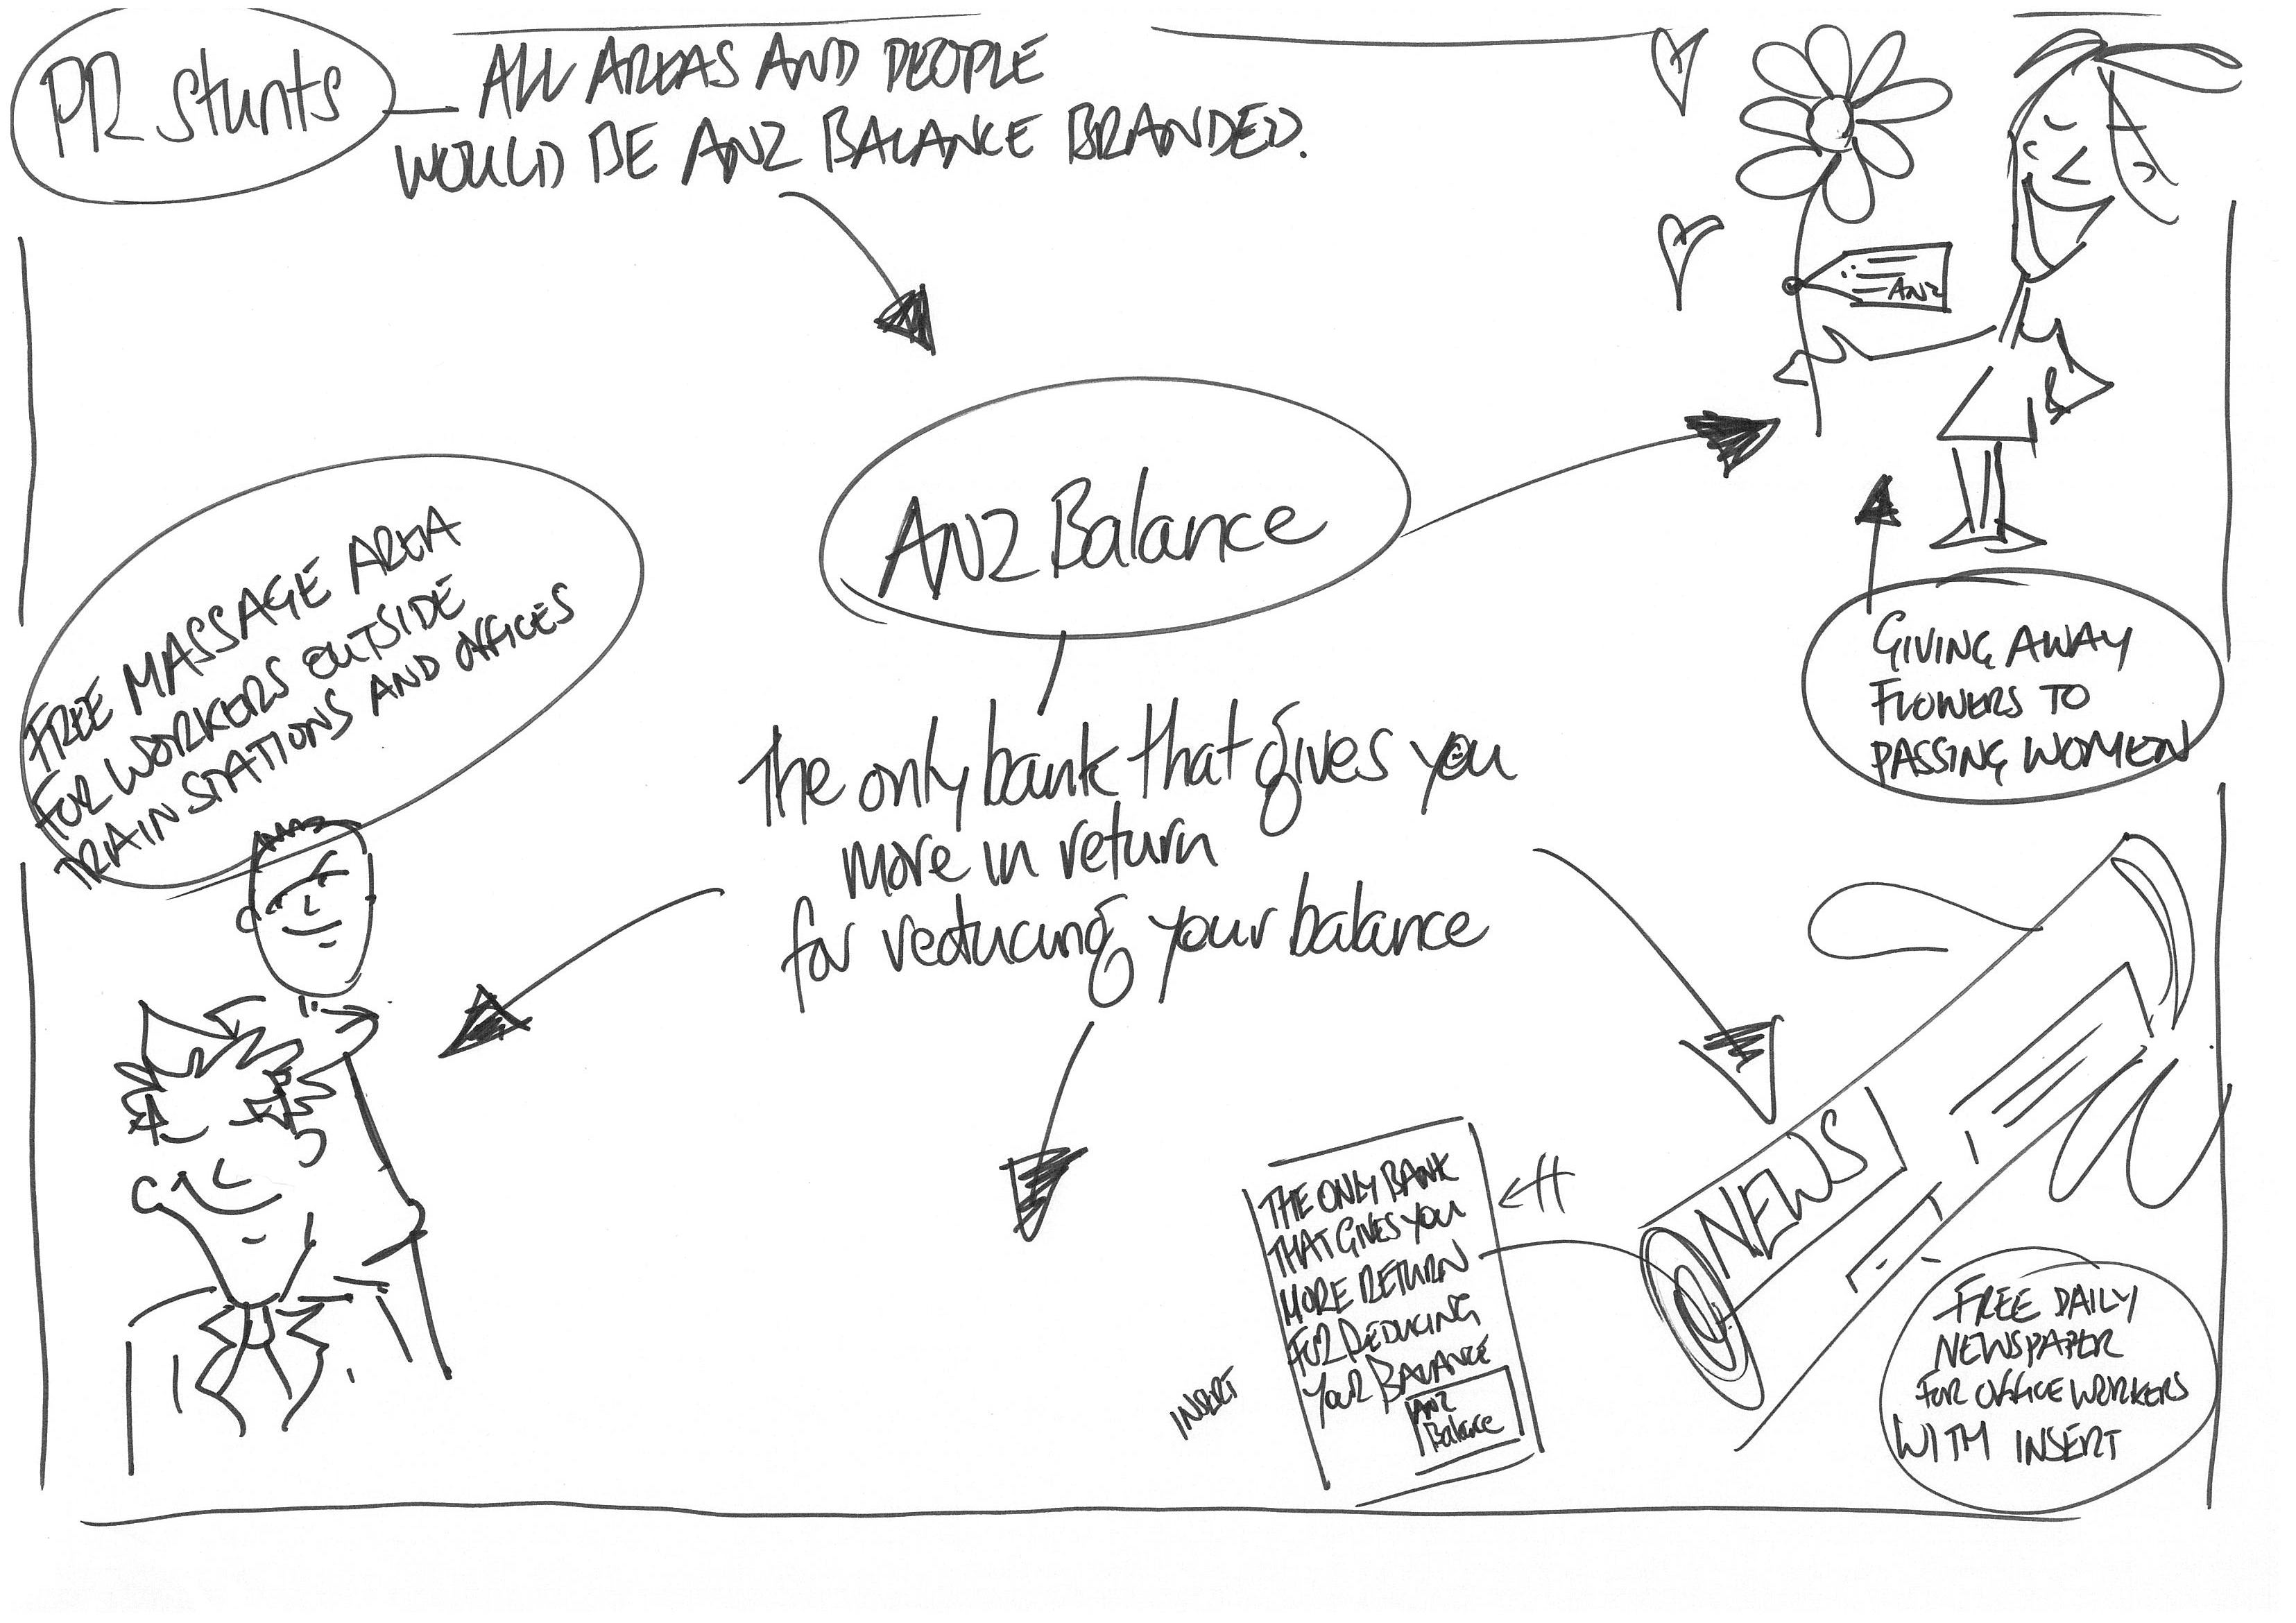 PR stunts
ALL AREAS AND PEOPLE
WOULD BE ANZ BALANCE BRANDED.
ANZ
ANZ Balance
FREE MASSAGE AREA
FOR WORKERS OUTSIDE
TRAIN STATIONS AND OFFICES
GIVING AWAY
FLOWERS TO
PASSING WOMEN
The only bank that gives you
more in return
for reducing your balance
NEWS
THE ONLY BANK
THAT GIVES YOU
MORE RETURN
FOR REDUCING
YOUR BALANCE
ANZ
Balance
INSERT
FREE DAILY
NEWSPAPER
FOR OFFICE WORKERS
WITH INSERT